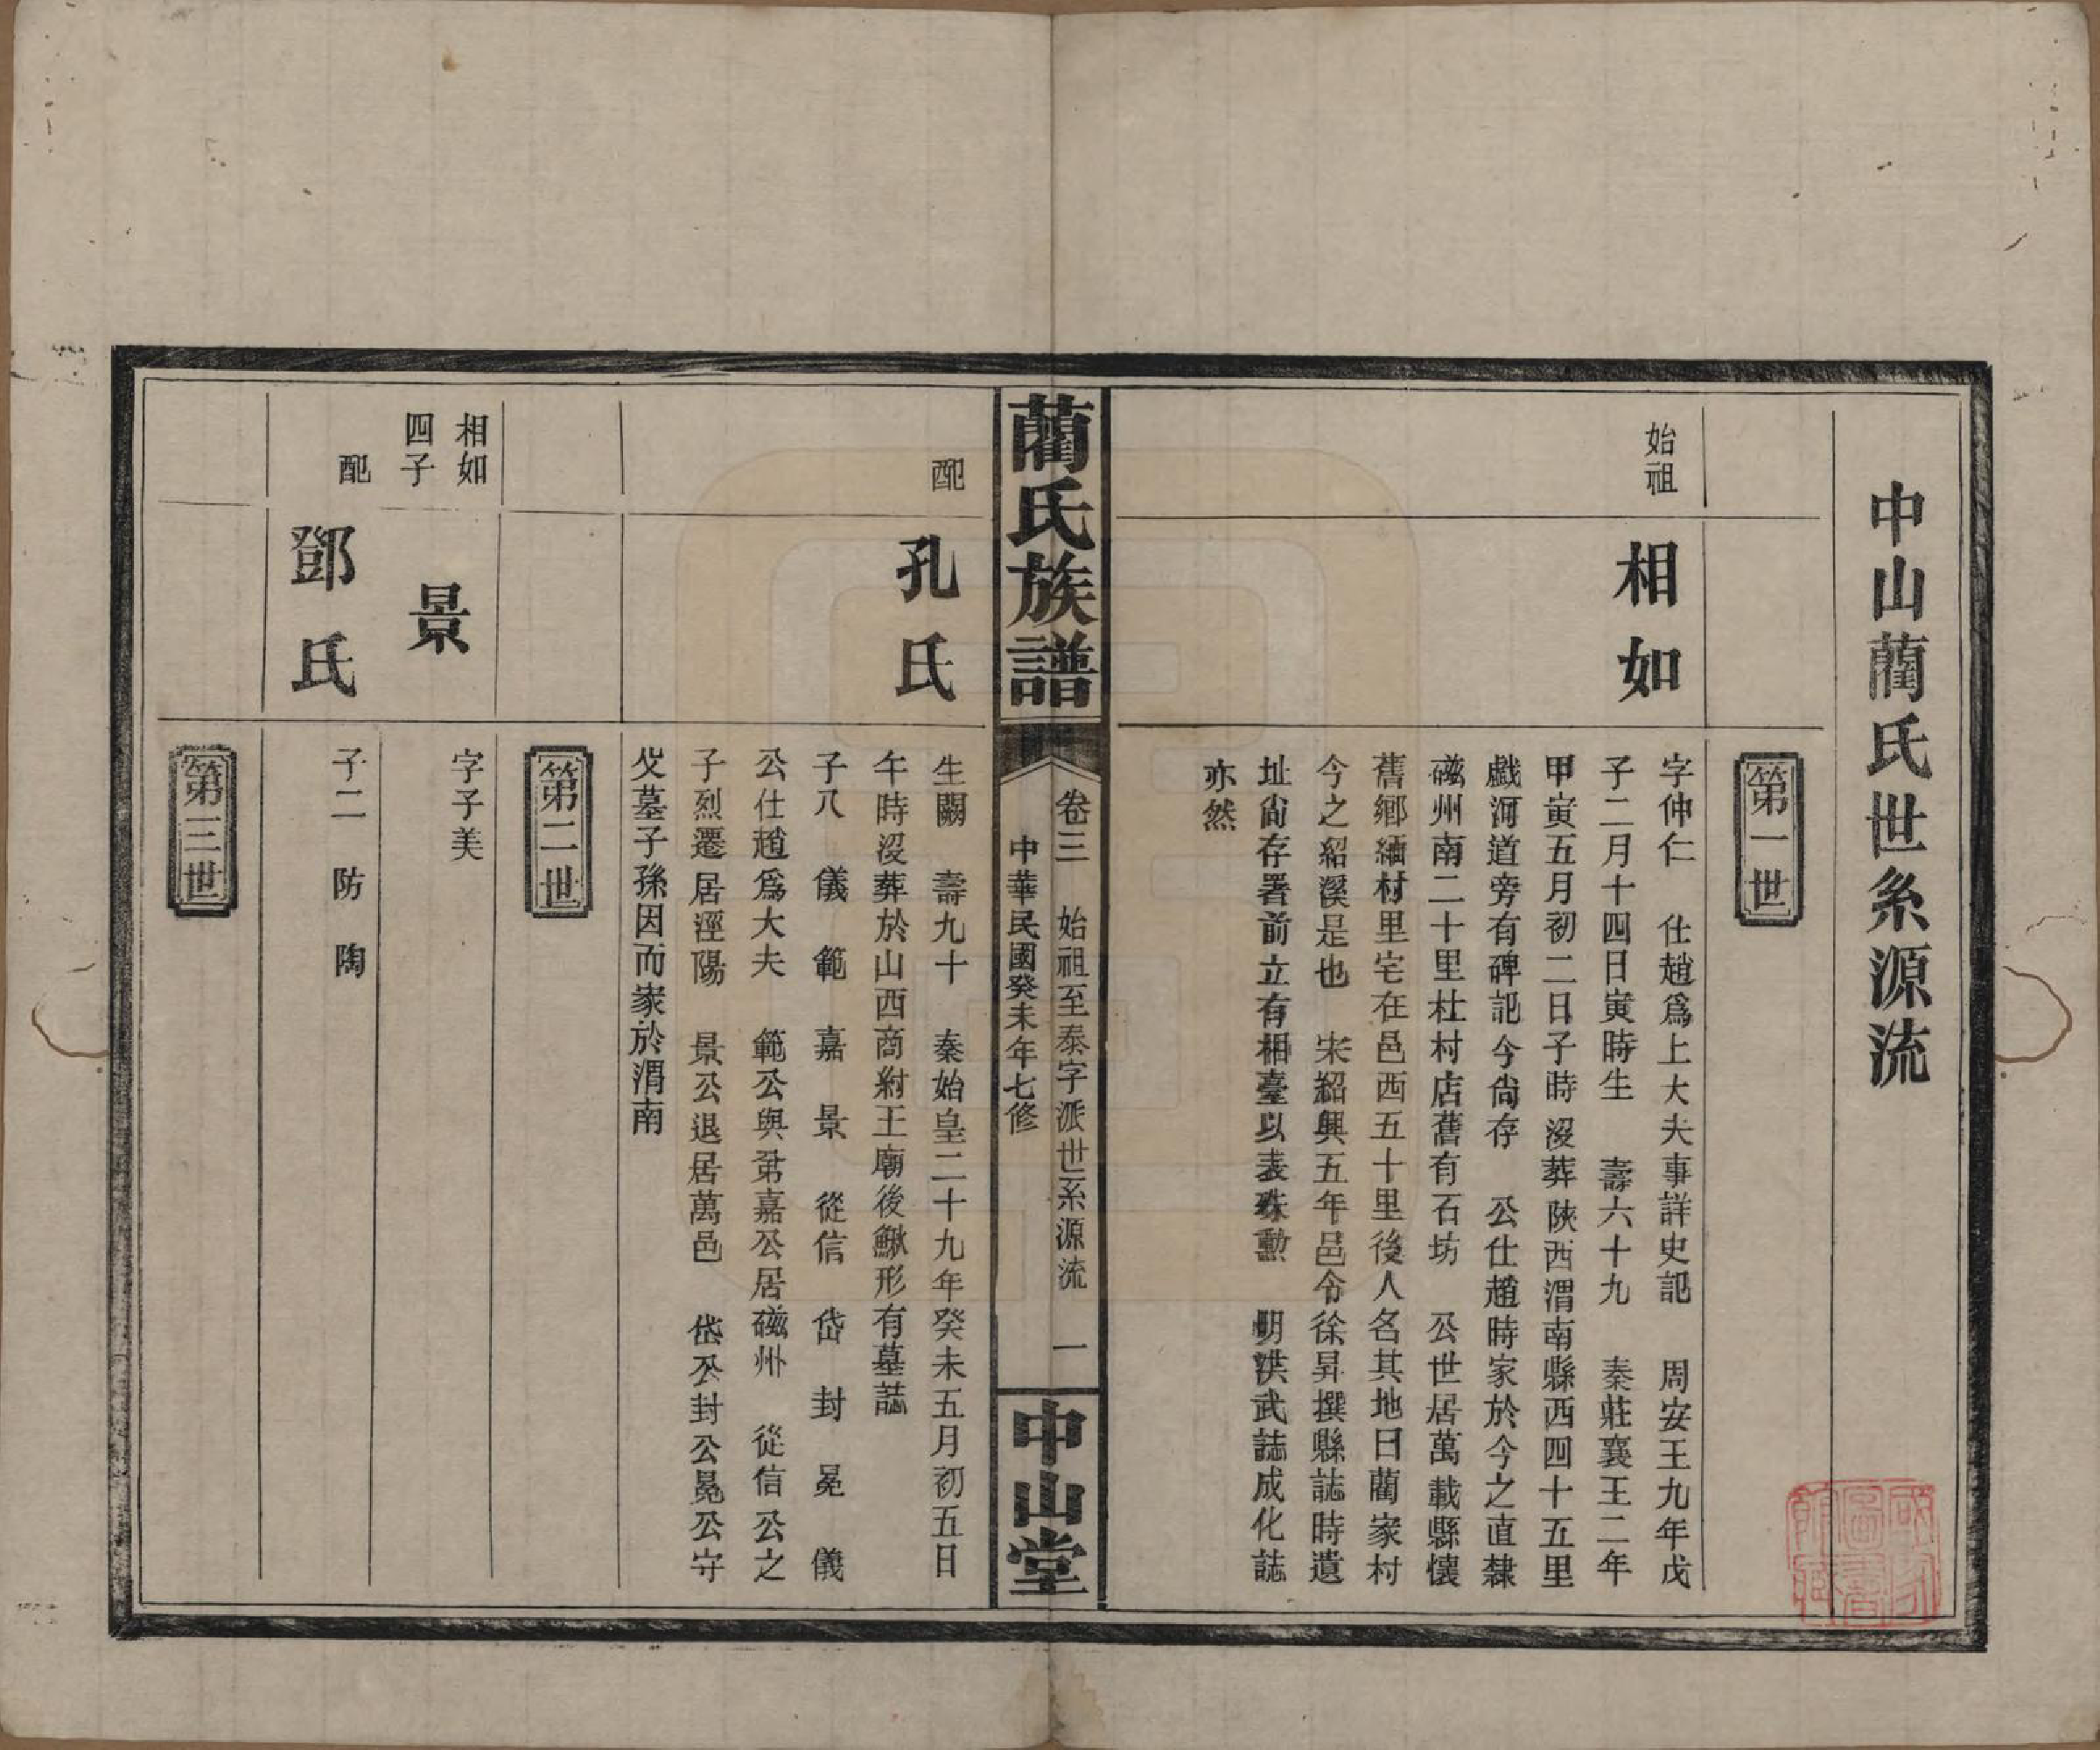 中山藺氏世系源流
第一世
始祖
相如
字仲仁　仕趙爲上大夫事詳史記　周安王九年戊
子二月十四日寅時生　壽六十九　秦莊襄王二年
甲寅五月初二日子時沒葬陝西渭南縣西四十五里
戲河道旁有碑記今尙存　公仕趙時家於今之直隸
磁州南二十里杜村店舊有石坊　公世居萬載縣懷
舊鄉緬村里宅在邑西五十里後人名其地曰藺家村
今之紹溪是也　宋紹興五年邑令徐昇撰縣誌時遺
址尙存署前立有相臺以表殊勳　明洪武誌成化誌
亦然
藺氏族譜
卷三　始祖至泰字派世系源流　一
中華民國癸未年七修
中山堂
配
孔氏
生闕　壽九十　秦始皇二十九年癸未五月初五日
午時沒葬於山西商紂王廟後鰍形有墓誌
子八　儀　範　嘉　景　從信　岱　封　冕　儀
公仕趙爲大夫　範公與弟嘉公居磁州　從信公之
子烈遷居涇陽　景公退居萬邑　岱公封公冕公守
父墓子孫因而家於渭南
第二世
相如
四子
景
字子美
配
鄧氏
子二　防　陶
第三世